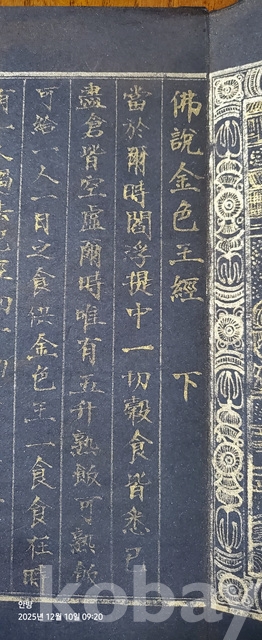 佛說金色王經 下
當於爾時閻浮提中一切穀食皆悉已
盡倉皆空虛爾時唯有五升熟飯可熟飯
可給一人一月之食供金色王一食食在時
안방
2025년 12월 10일 09:20
kobay